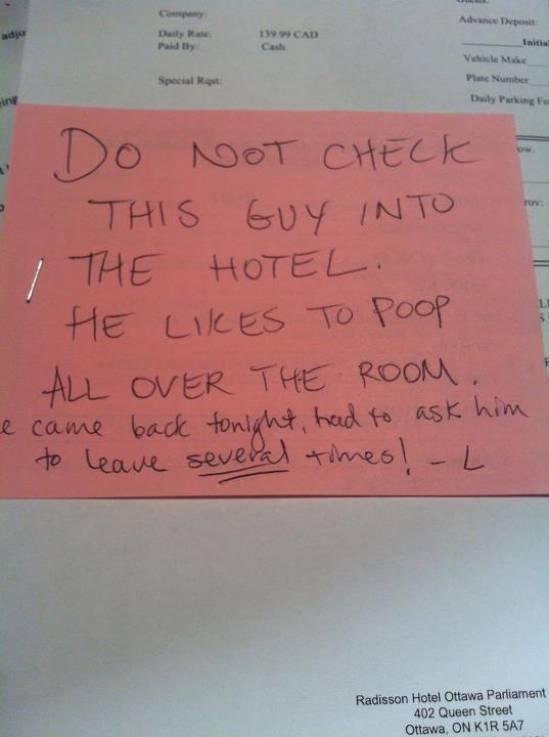 Company:
Daily Rate: 139.99 CAD
Paid By: Cash
Special Rqst:
Advance Deposit:
Initia
Vehicle Make
Plate Number
Daily Parking Fe
DO NOT CHECK
THIS GUY INTO
THE HOTEL.
HE LIKES TO POOP
ALL OVER THE ROOM.
e came back tonight, had to ask him
to leave several times! - L
Radisson Hotel Ottawa Parliament
402 Queen Street
Ottawa, ON K1R 5A7